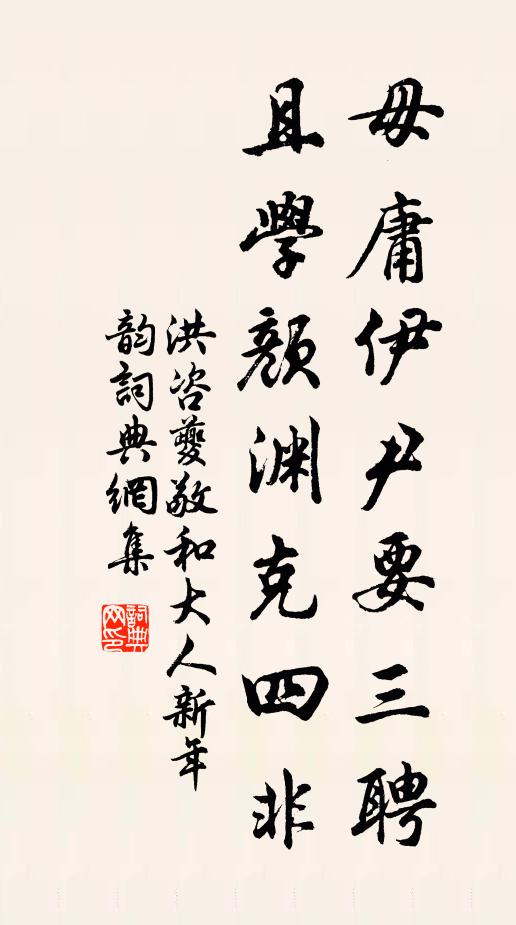 毋庸伊尹要三聘
且學顏渊克四非
洪咨夔敬和大人新年
韵詞典網集
詞典网印